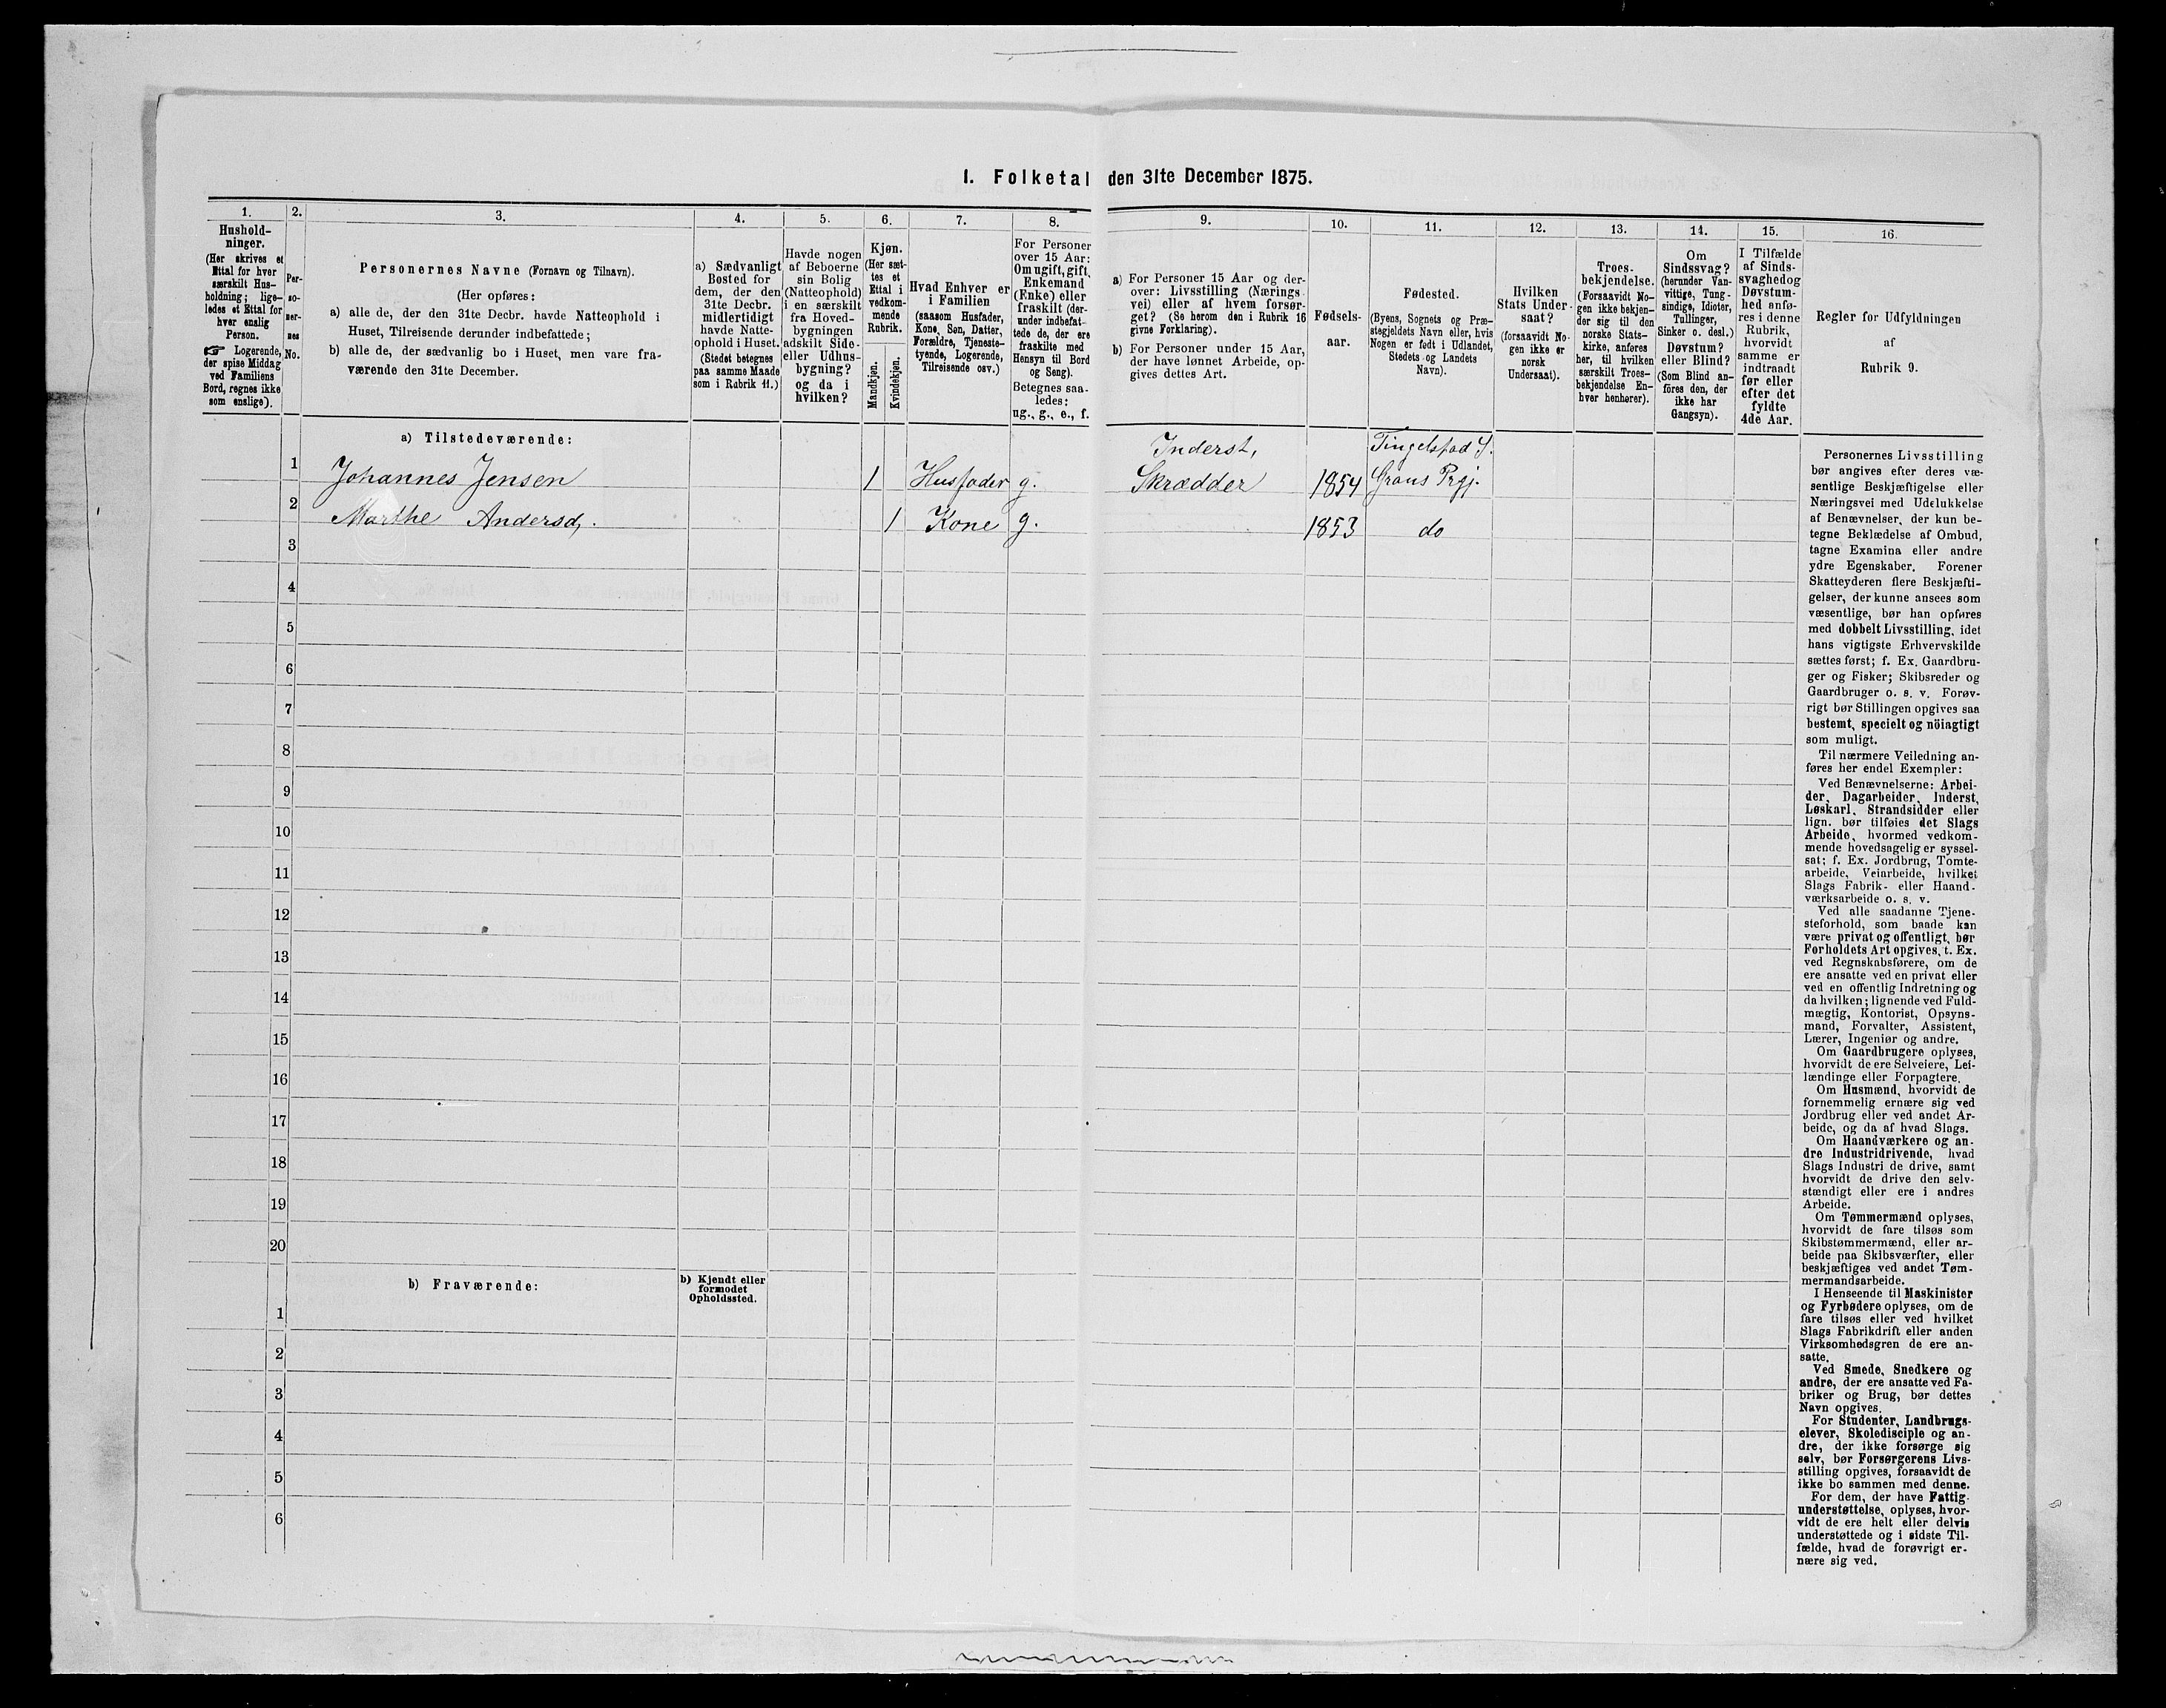 I. Folketal den 31te December 1875.
1.
Hushold-
ninger.
(Her skrives et
Ettal for hver
særskilt Hus-
holdning; lige-
ledes et Ettal for
hver enslig
Person.
☞ Logerende,
der spise Middag
ved Familiens
Bord, regnes ikke
som enslige).
2.
Per-
so-
ner-
nes
No.
3.
Personernes Navne (Fornavn og Tilnavn).
(Her opføres:
a) alle de, der den 31te Decbr. havde Natteophold i
Huset, Tilreisende derunder indbefattede;
b) alle de, der sædvanlig bo i Huset, men vare fra-
værende den 31te December.
4.
a) Sædvanligt
Bosted for
dem, der den
31te Decbr.
midlertidigt
havde Natte-
ophold i Huset.
(Stedet betegnes
paa samme Maade
som i Rubrik 11.)
5.
Havde nogen
af Beboerne
sin Bolig
(Natteophold)
i en særskilt
fra Hoved-
bygningen
adskilt Side-
eller Udhus-
bygning?
og da i
hvilken?
6.
Kjøn.
(Her sæt-
tes et
Ettal i
vedkom-
mende
Rubrik.
Mandkjøn.
Kvindekjøn.
7.
Hvad Enhver er
i Familien
(saasom Husfader,
Kone, Søn, Datter,
Forældre, Tjeneste-
tyende, Logerende,
Tilreisende osv.)
8.
For Personer
over 15 Aar:
Om ugift, gift,
Enkemand
(Enke) eller
fraskilt (der-
under indbefat-
tede de, der ere
fraskilte med
Hensyn til Bord
og Seng).
Betegnes saa-
ledes:
ug., g., e., f.
9.
a) For Personer 15 Aar og der-
over: Livsstilling (Nærings-
vei) eller af hvem forsør-
get? (Se herom den i Rubrik 16
givne Forklaring).
b) For Personer under 15 Aar,
der have lønnet Arbeide, op-
gives dettes Art.
10.
Fødsels-
aar.
11.
Fødested.
(Byens, Sognets og Præ-
stegjeldets Navn eller, hvis
Nogen er født i Udlandet,
Stedets og Landets
Navn).
12.
Hvilken
Stats Under-
saat?
(forsaavidt No-
gen ikke er
norsk
Undersaat).
13.
Troes-
bekjendelse.
(Forsaavidt No-
gen ikke bekjen-
der sig til den
norske Stats-
kirke, anføres
her, til hvilken
særskilt Troes-
bekjendelse En-
hver henhører).
14.
Om
Sindssvag?
(herunder Van-
vittige, Tung-
sindige, Idioter,
Tullinger,
Sinker o. desl.)
Døvstum?
eller Blind?
(Som Blind an-
føres den, der
ikke har
Gangsyn).
15.
I Tilfælde
af Sinds-
svaghedog
Døvstum-
hed anfø-
res i denne
Rubrik,
hvorvidt
samme er
indtraadt
før eller
efter det
fyldte
4de Aar.
16.
Regler for Udfyldningen
af
Rubrik 9.
a) Tilstedeværende:
Inderst, Tingelstad S.
1 Johannes Jensen 1 Husfader g. Skrædder 1854 Grans Prgj.
2 Marthe Andersd. 1 Kone g. 1853 do
3
4
5
6
7
8
9
10
11
12
13
14
15
16
17
18
19
20
b) Fraværende:
b) Kjendt eller
formodet
Opholdssted.
1
2
3
4
5
6
Personernes Livsstilling
bør angives efter deres væ-
sentlige Beskjæftigelse eller
Næringsvei med Udelukkelse
af Benævnelser, der kun be-
tegne Beklædelse af Ombud,
tagne Examina eller andre
ydre Egenskaber. Forener
Skatteyderen flere Beskjæfti-
gelser, der kunne ansees som
væsentlige, bør han opføres
med dobbelt Livsstilling, idet
hans vigtigste Erhvervskilde
sættes først; f. Ex. Gaardbru-
ger og Fisker; Skibsreder og
Gaardbruger o. s. v. Forøv-
rigt bør Stillingen opgives saa
bestemt, specielt og nöiagtigt
som muligt.
Til nærmere Veiledning an-
føres her endel Exempler:
Ved Benævnelserne: Arbei-
der, Dagarbeider, Inderst,
Løskarl, Strandsidder eller
lign. bør tilføies det Slags
Arbeide, hvormed vedkom-
mende hovedsagelig er syssel-
sat; f. Ex. Jordbrug, Tomte-
arbeide, Veiarbeide, hvilket
Slags Fabrik- eller Haand-
værksarbeide o. s. v.
Ved alle saadanne Tjene-
steforhold, som baade kan
være privat og offentligt, bør
Forholdets Art opgives, t. Ex.
ved Regnskabsførere, om de
ere ansatte ved en privat eller
ved en offentlig Indretning og
da hvilken; lignende ved Fuld-
mægtig, Kontorist, Opsyns-
mand, Forvalter, Assistent,
Lærer, Ingeniør og andre.
Om Gaardbrugere oplyses,
hvorvidt de ere Selveiere, Lei-
lændinge eller Forpagtere.
Om Husmænd, hvorvidt de
fornemmelig ernære sig ved
Jordbrug eller ved andet Ar-
beide, og da af hvad Slags.
Om Haandværkere og an-
dre Industridrivende, hvad
Slags Industri de drive, samt
hvorvidt de drive den selv-
stændigt eller ere i andres
Arbeide.
Om Tømmermænd oplyses,
hvorvidt de fare tilsøs som
Skibstømmermænd, eller ar-
beide paa Skibsværfter, eller
beskjæftiges ved andet Tøm-
mermandsarbeide.
I Henseende til Maskinister
og Fyrbødere oplyses, om de
fare tilsøs eller ved hvilket
Slags Fabrikdrift eller anden
Virksomhedsgren de ere an-
satte.
Ved Smede, Snedkere og
andre, der ere ansatte ved Fa-
briker og Brug, bør dettes
Navn opgives.
For Studenter, Landbrugs-
elever, Skoledisciple og an-
dre, der ikke forsørge sig
selv, bør Forsørgerens Livs-
stilling opgives, forsaavidt de
ikke bo sammen med denne.
For dem, der have Fattig-
understøttelse, oplyses, hvor-
vidt de ere helt eller delvis
understøttede og i sidste Til-
fælde, hvad de forøvrigt er-
nære sig ved.